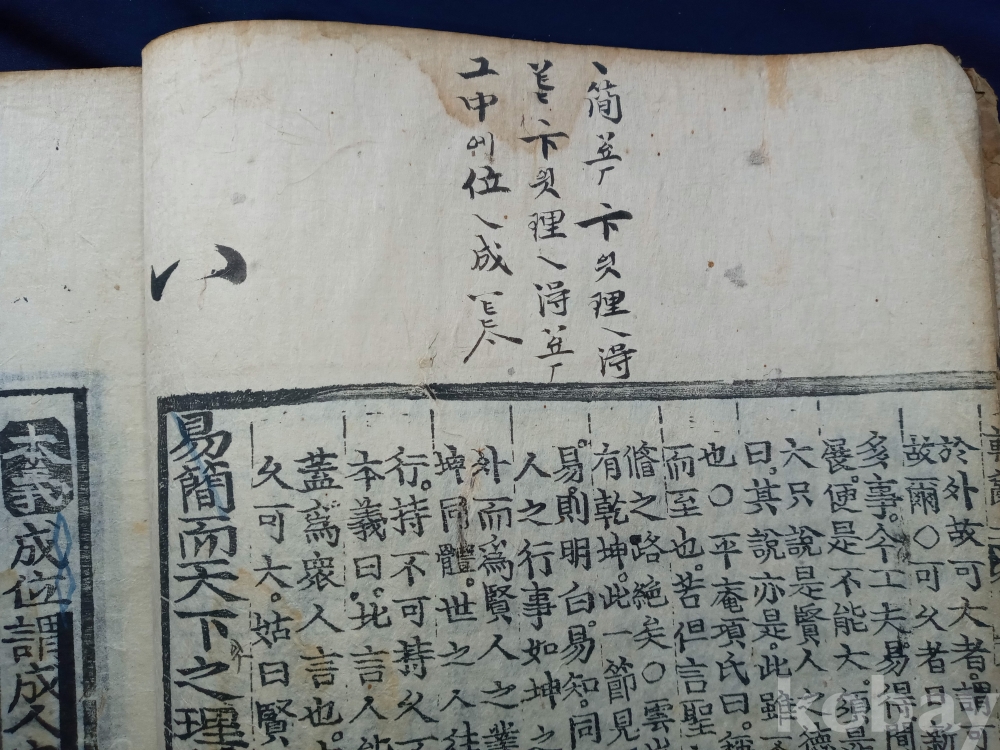 簡 卞 理 淂
卞 理 淂
그 中 位 成
於外故可大者。謂可
故爾○可久者日新
多事。今工夫易得間
展。便是不能大。須是
六只說是賢人之德
曰。其說亦是。此雖
也○平庵項氏曰。稱
而至也。若但言聖
脩之路絶矣○雲
有乾坤。此一節見
易則明白。易知。同
人之行事如坤之
外而爲賢人之業
坤同體。世之人往
行。持不可持久
本義曰。此言人能
蓋爲衆人言也。
久可大。姑曰賢
易簡而天下之理
八
本義 成位謂成人
kobay